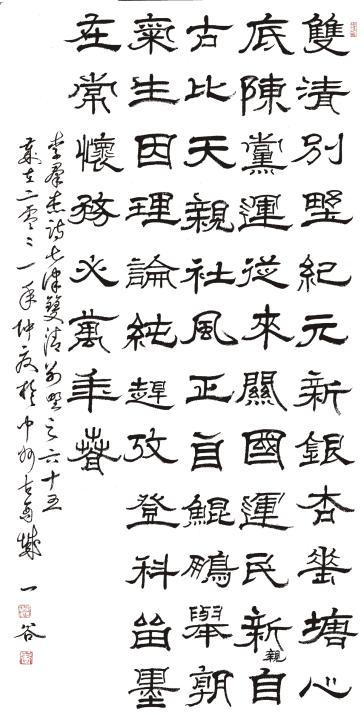 雙清別墅紀元新銀杏垂塘心
底陳黨運從來關國運民新自
親
古比天親社風正自鯤鵬舉朝
氣生因理論純趕攷登科留墨
在常懷務必萬年春
詩七律雙清別墅之六十五
歲在二零二一年仲夏於
一谷